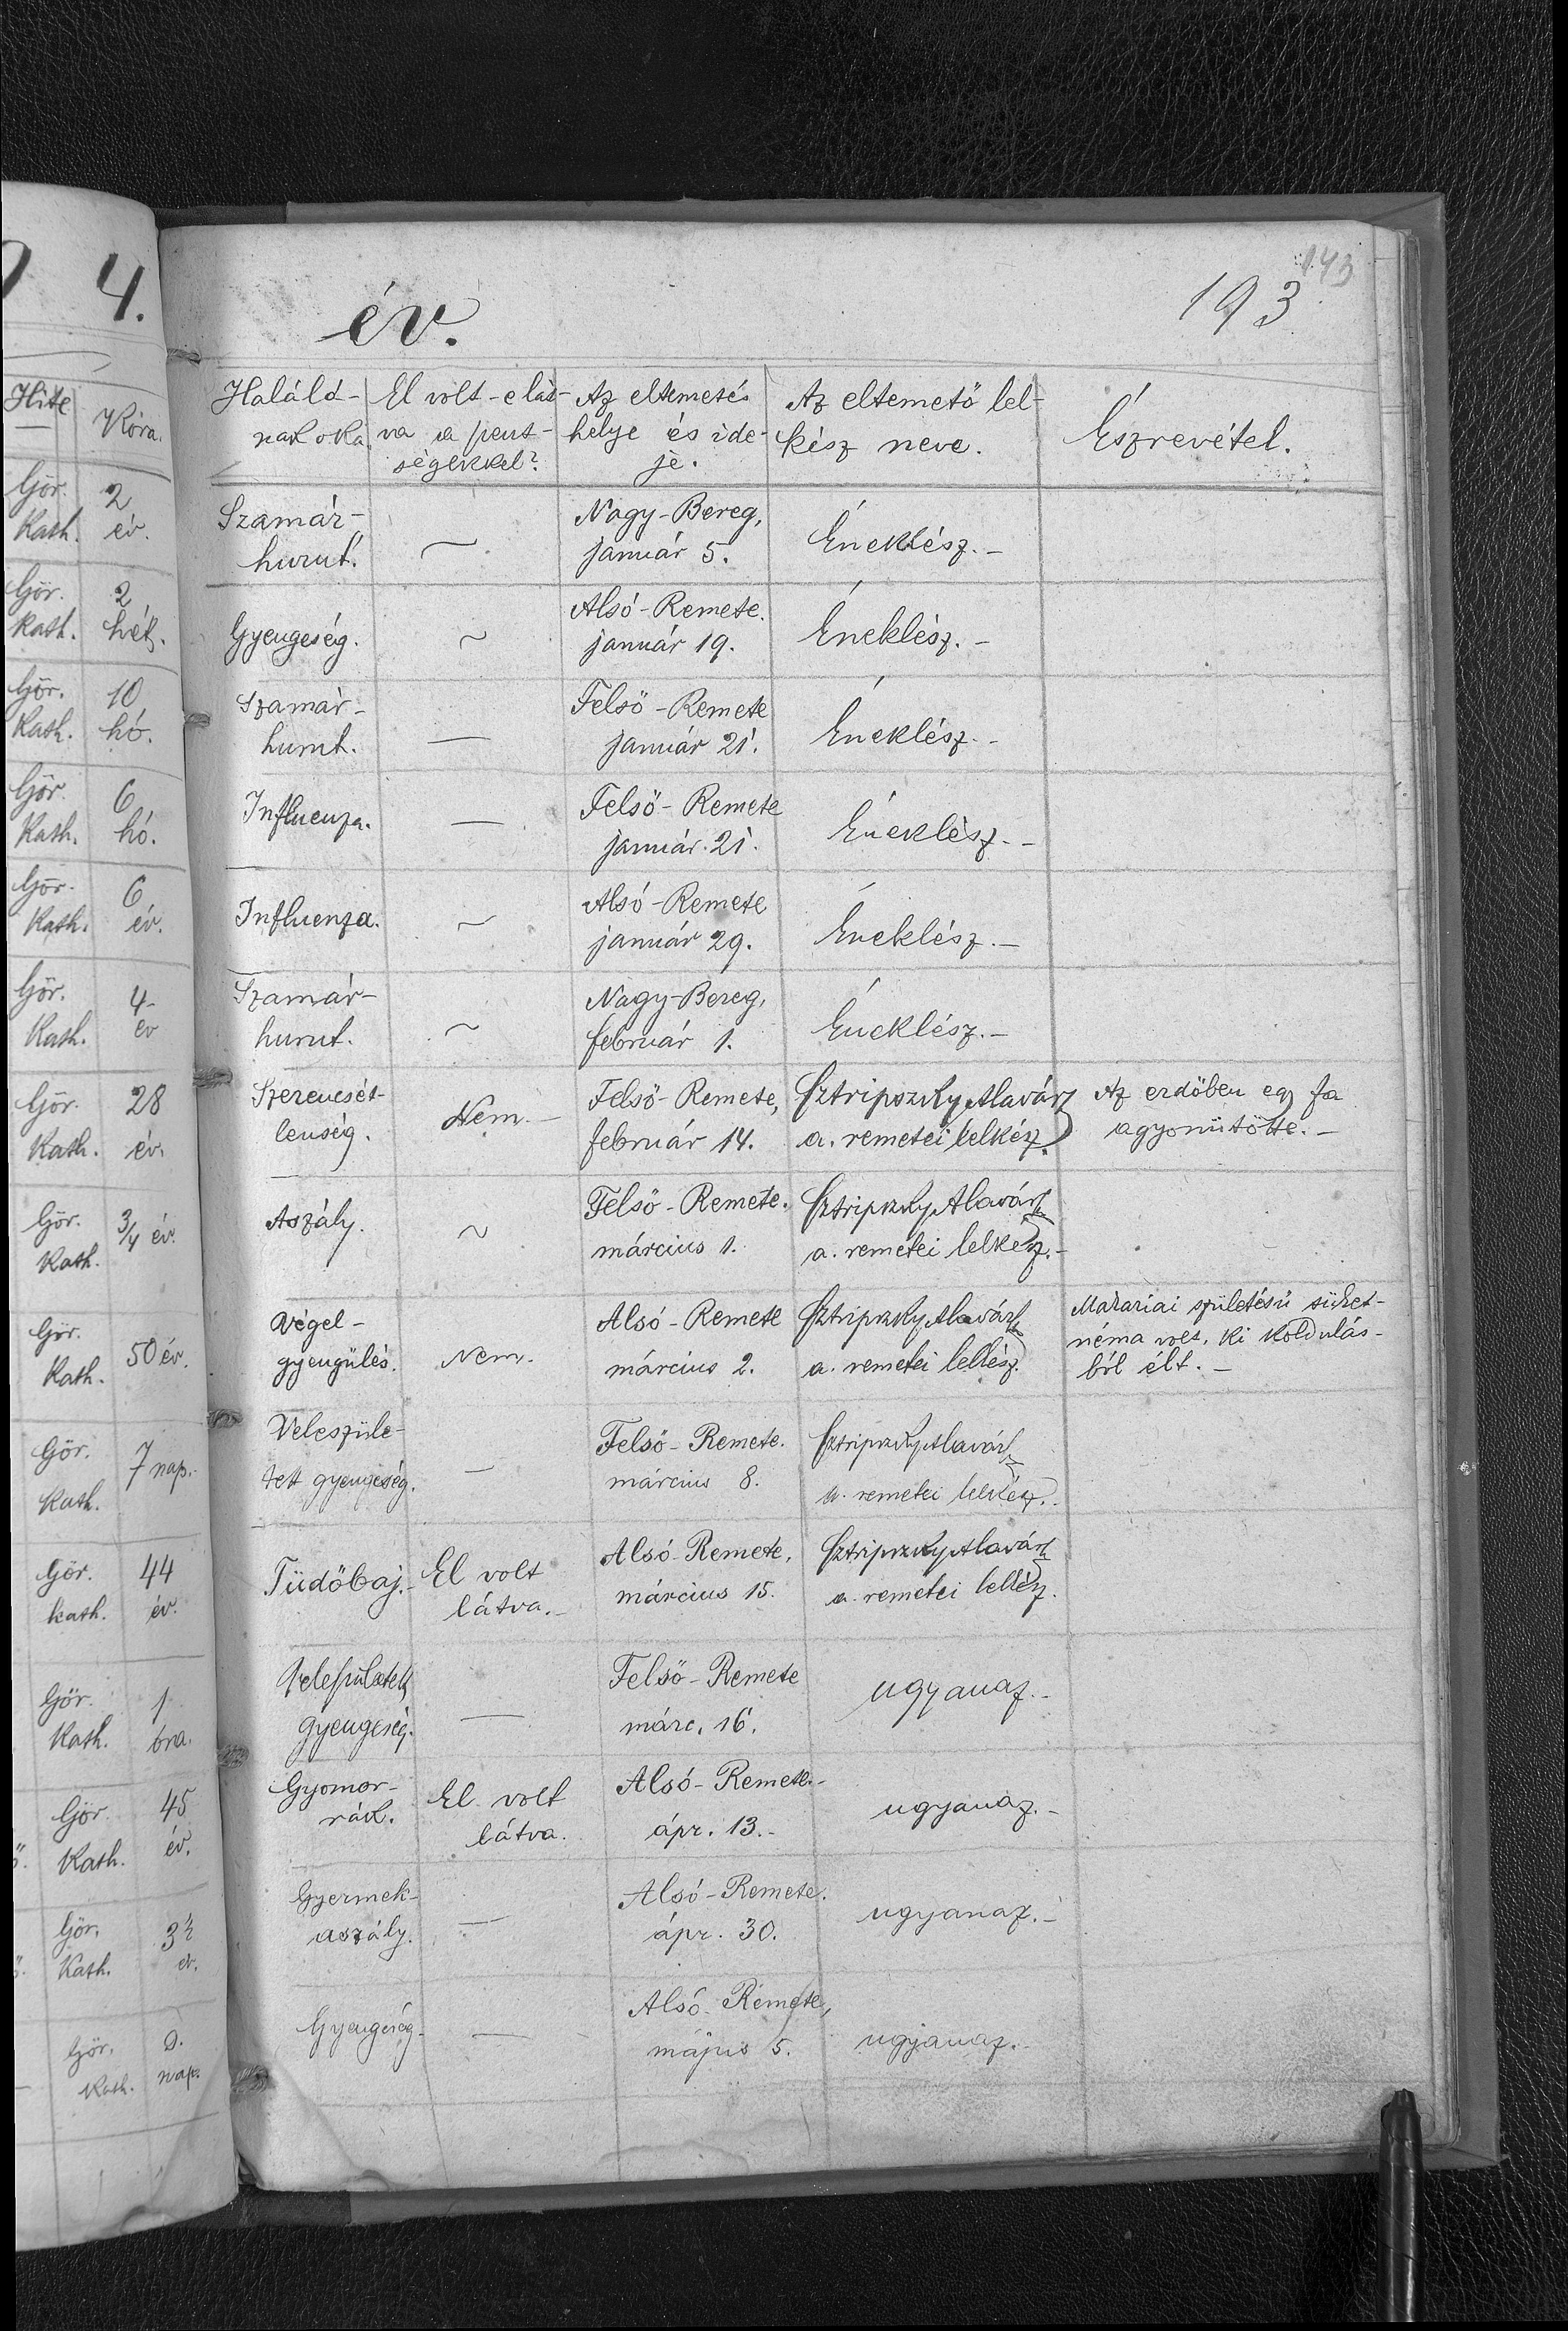 4.
év.
193
143
Hite
Kora.
Haláláнak oka
El volt-e látva a szentségekkel?
Az eltemetés helye és ideje.
Az eltemető lelkész neve.
Észrevétel.
Gör. Kath.
2 év.
Szamárhurut.
~
Nagy-Bereg, január 5.
Éneklész. -
Gör. Kath.
2 hét.
Gyengeség.
~
Alsó-Remete. január 19.
Éneklész. -
Gör. Kath.
10 hó.
Szamárhurut.
—
Felső-Remete január 21.
Éneklész. -
Gör. Kath.
6 hó.
Influenza.
—
Felső-Remete január. 21.
Éneklész. -
Gör. Kath.
6 év.
Influenza.
~
Alsó-Remete január 29.
Éneklész. -
Gör. Kath.
4 év
Szamárhurut.
~
Nagy-Bereg, február 1.
Éneklész. -
Gör. Kath.
28 év.
Szerencsétlenség.
Nem. -
Felső-Remete, február 14.
Sztripszky Alavár a. remetei lelkész.
Az erdőben egy fa agyonütötte. -
Gör. Kath.
3/4 év.
Aszály.
~
Felső-Remete. március 1.
Sztripszky Alavár a. remetei lelkész. -
Gör. Kath.
50 év.
Végelgyengülés.
Nem.
Alsó-Remete március 2.
Sztripszky Alavár a. remetei lelkész.
Makariai születésű süketnéma volt, ki koldulásból élt. -
Gör. Kath.
7 nap.
Veleszületett gyengeség.
—
Felső-Remete. március 8.
Sztripszky Alavár a. remetei lelkész.
Gör. kath.
44 év.
Tüdőbaj.
El volt látva. -
Alsó-Remete, március 15.
Sztripszky Alavár a. remetei lelkész.
Gör. Kath.
1 óra.
Veleszületett gyengeség.
—
Felső-Remete márc. 16.
ugyanaz. -
Gör. Kath.
45 év.
Gyomorrák.
El volt látva.
Alsó-Remete. - ápr. 13. -
ugyanaz. -
Gör. Kath.
3½ év.
Gyermekaszály.
—
Alsó-Remete. ápr. 30.
ugyanaz. -
Gör. Kath.
nap.
Gyengeség.
—
Alsó-Remete, május 5.
ugyanaz.